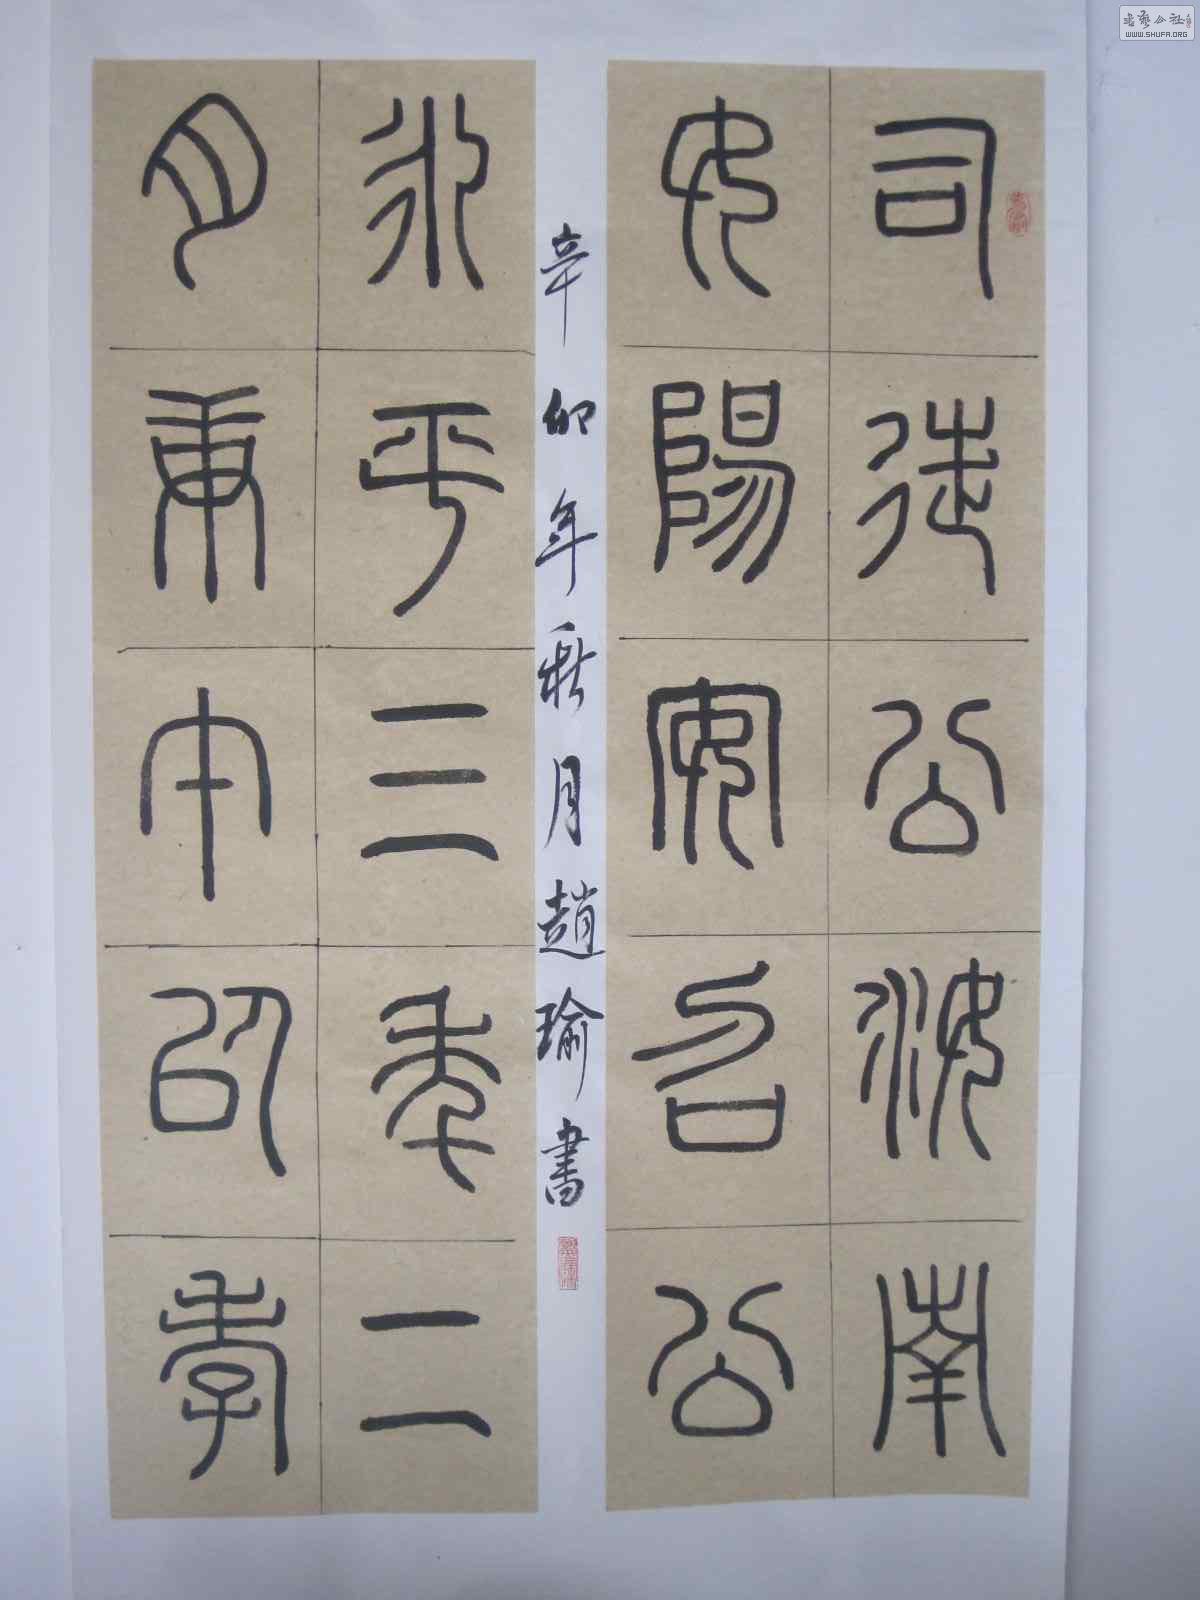 司徒公汝南
女陽安召公
永平三年二
月庚午以孝
辛卯年秋月趙瑜書
書藝公社
WWW.SHUFA.ORG